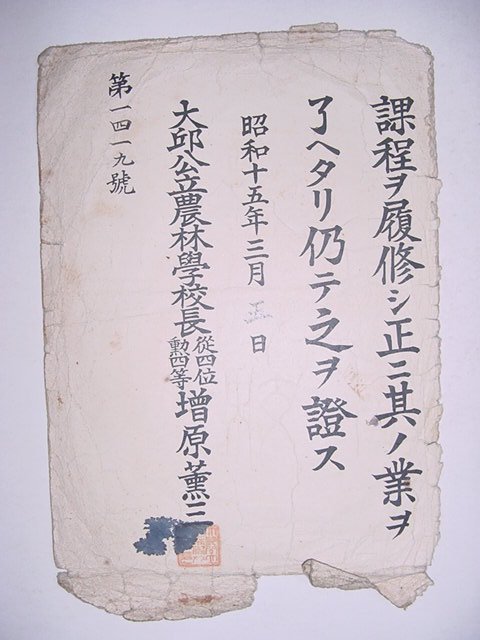 課程ヲ履修シ正ニ其ノ業ヲ
了ヘタリ仍テ之ヲ證ス
昭和十五年三月五日
大邱公立農林學校長從四位勲四等增原薫三
第一四一九號